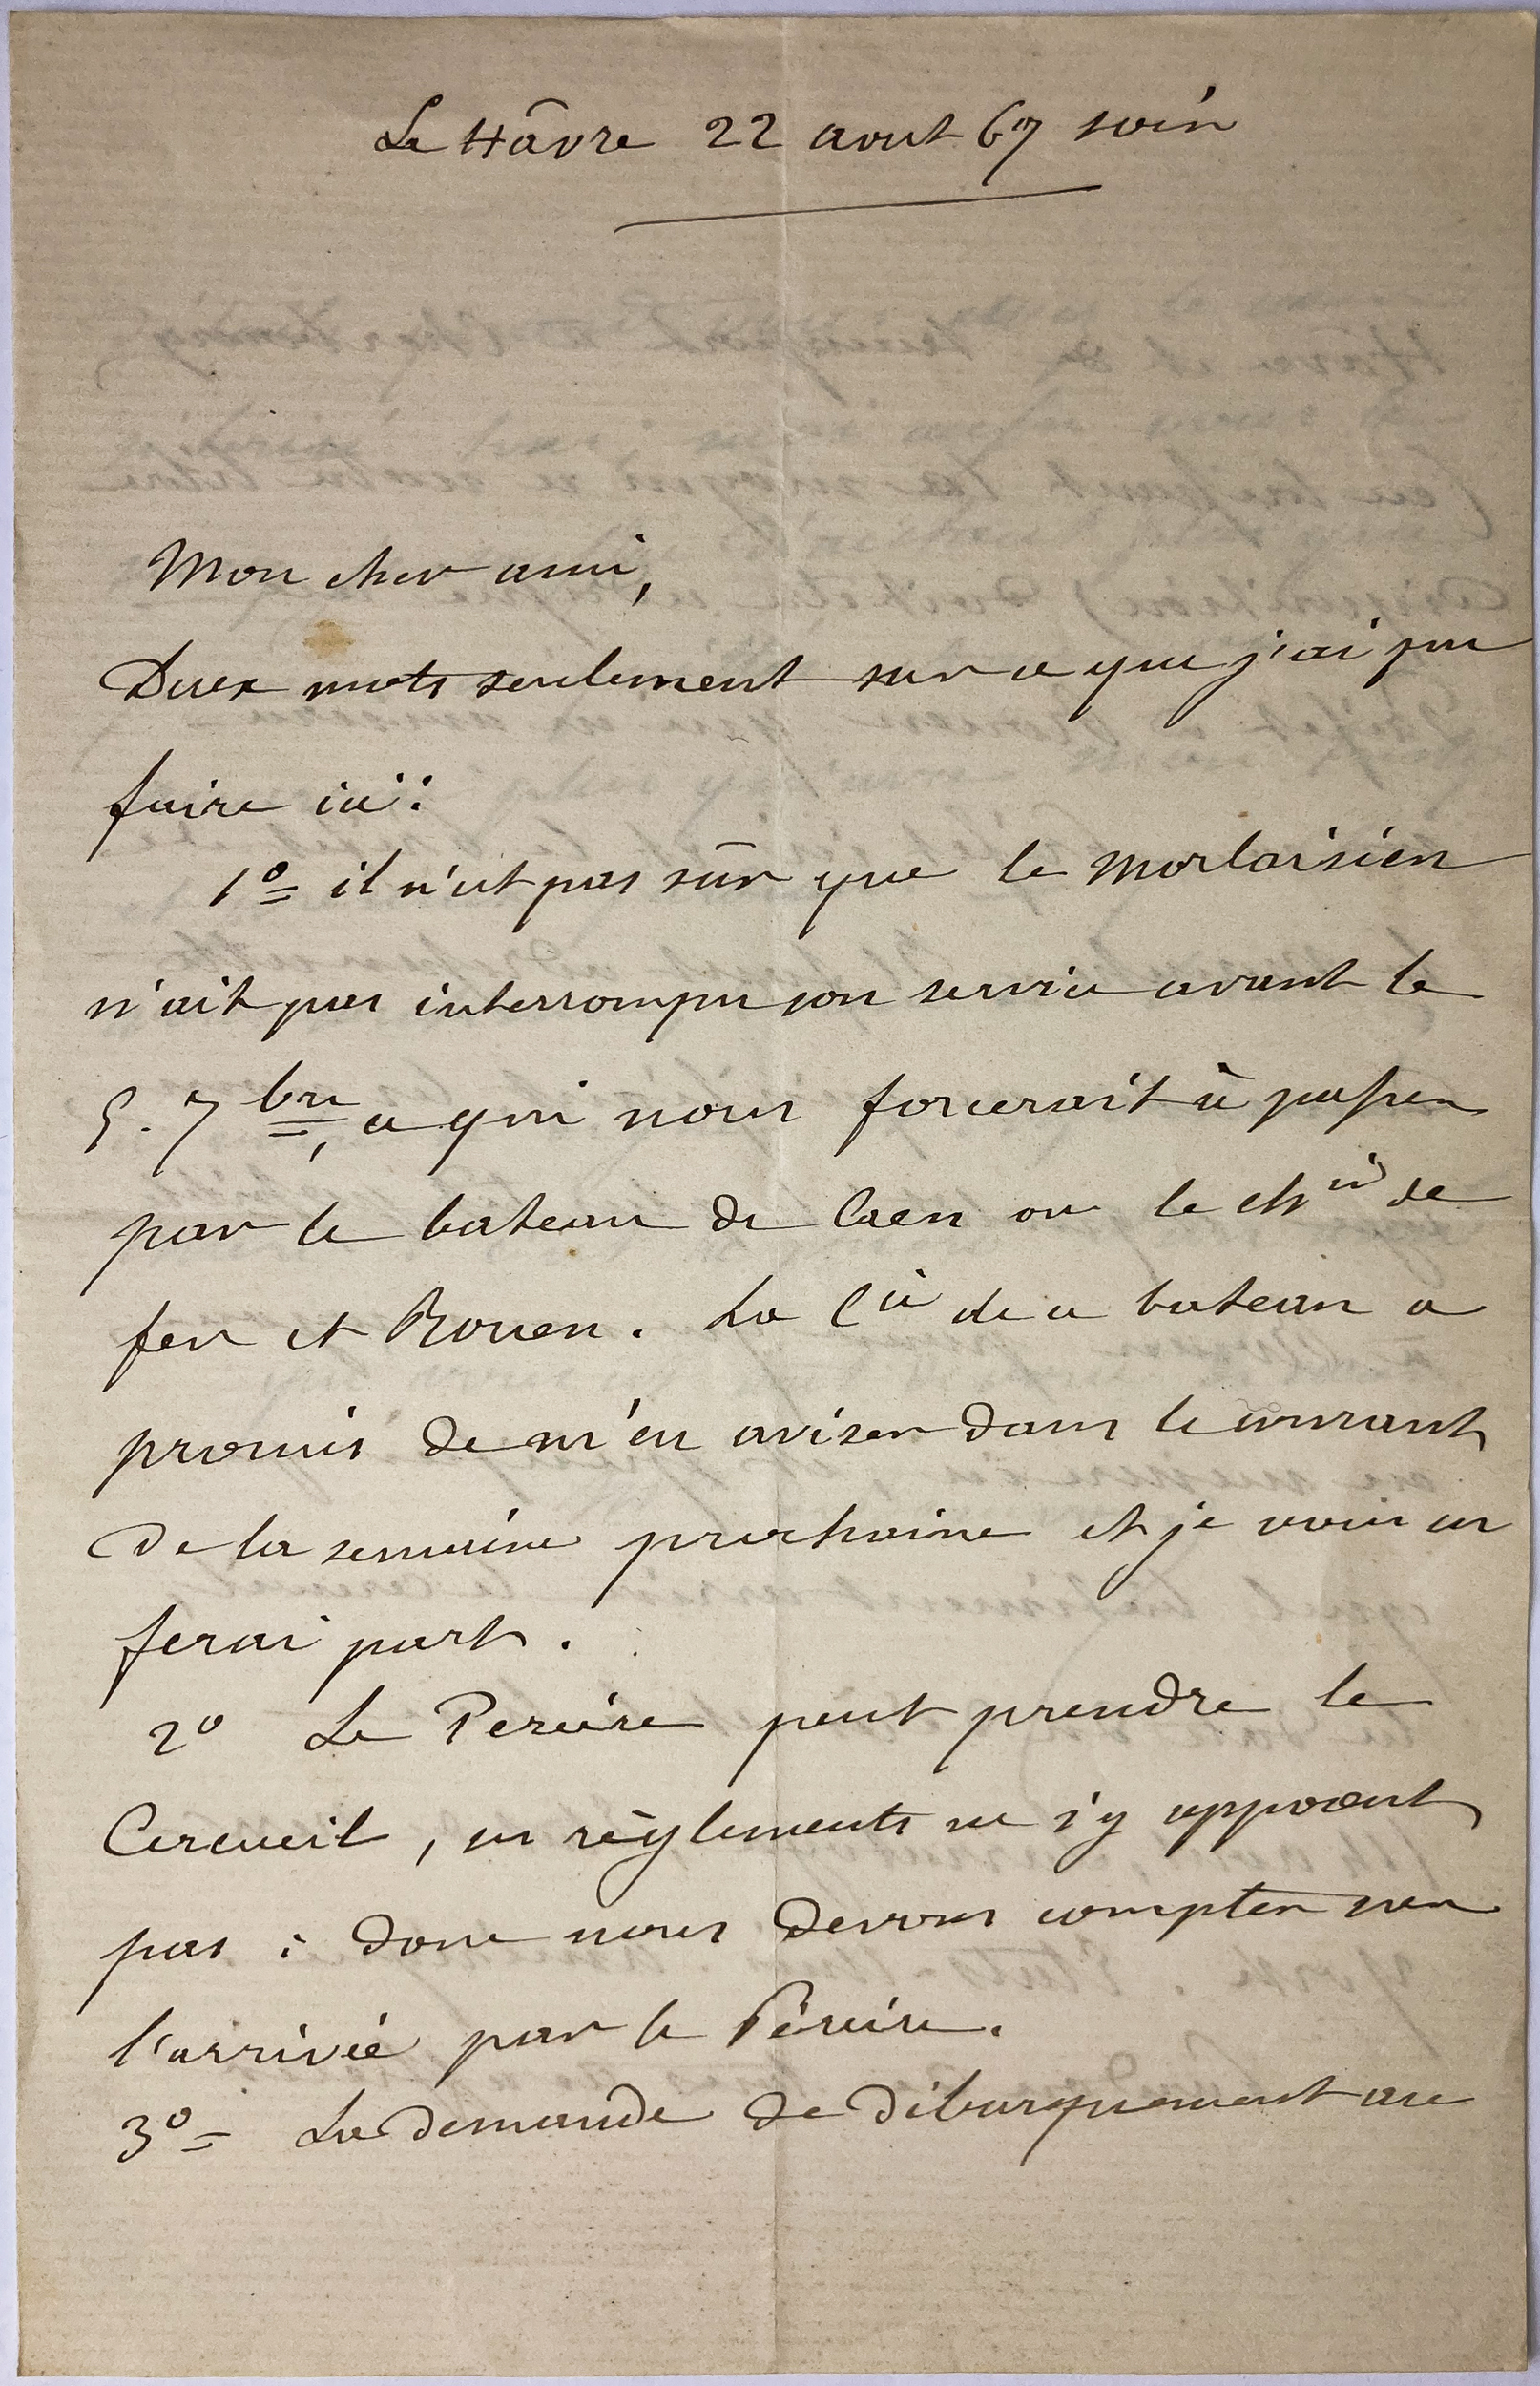 Le Hâvre 22 aout 67 soir
Mon cher ami,
Deux mots seulement sur ce que j'ai pu
faire ici :
1º il n'est pas sûr que le Morlaisien
n'ait pas interrompu son service avant le
5. 7bre, ce qui nous forcerait à passer
par le bateau de Caen ou le chin de
fer et Rouen. La Cie de ce bateau a
promis de m'en aviser dans le courant
de la semaine prochaine et je vous en
ferai part.
2º Le Pereire peut prendre le
Cercueil, les règlements ne s'y opposent
pas : donc nous devons compter sur
l'arrivée par le Péreire.
3º La demande de débarquement au